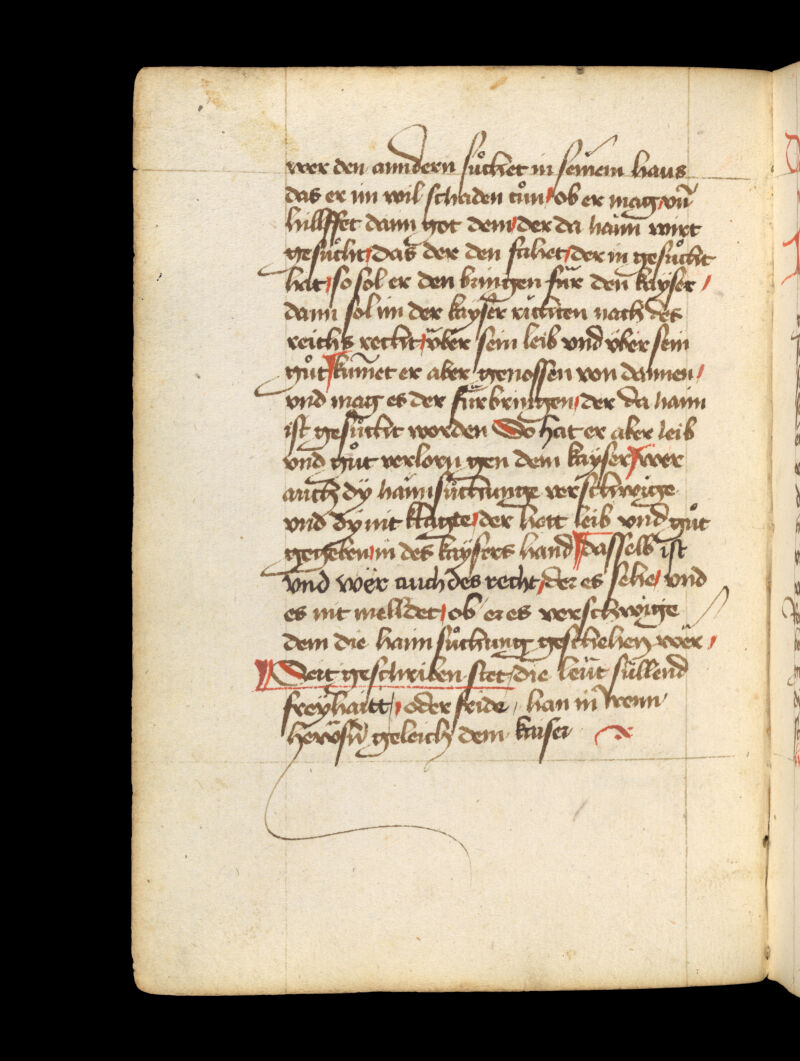 wer den anndern suͦchet in seinem haus
das er im wil schaden tuͦn / ob er mag / vn̄
hillffet dann got dem / der da haim wirt
gesuͦcht / das der den fahet / der in gesuͦcht
hat / so sol er den bringen für den kayser /
dann sol im der kayser richten nach des
reichs recht / vber sein leib vnd vber sein
guͦt kum̄et er aber genossen von dannen /
vnd mag es der fürbringen / der da haim
ist gesuͦcht worden So hat er aber leib
vnd guͦt verlorn gen dem kayser / wer
auch dy haimsuͦchunge verschweige
vnd dy nit klagte / der hett leib vnd guͦt
gegeben / in des kaysers hand dasselb ist
vnd wer auch des recht / der es sehe / vnd
es nit melldet / ob er es verschweige
dem die haimsuͦchung geschehen wër /
geschriben stet / die leüt süllend
freyhaitt / oder fride / han in
geleich dem kaiser